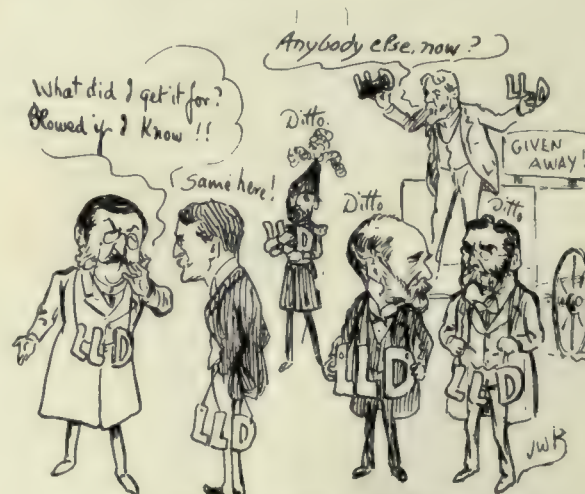 Anybody else, now?
LLD
LLD
What did I get it for?
Blowed if I Know!!
Same here!
Ditto.
Ditto
Ditto
GIVEN
AWAY!
LLD
LLD
LLD
LLD
LLD
JWB